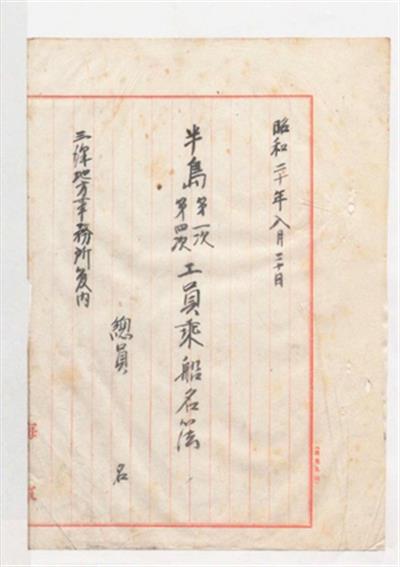 昭和二十年八月二十日
半島第一次第四次工員乘船名簿
總員 名
三澤地方事務所管内